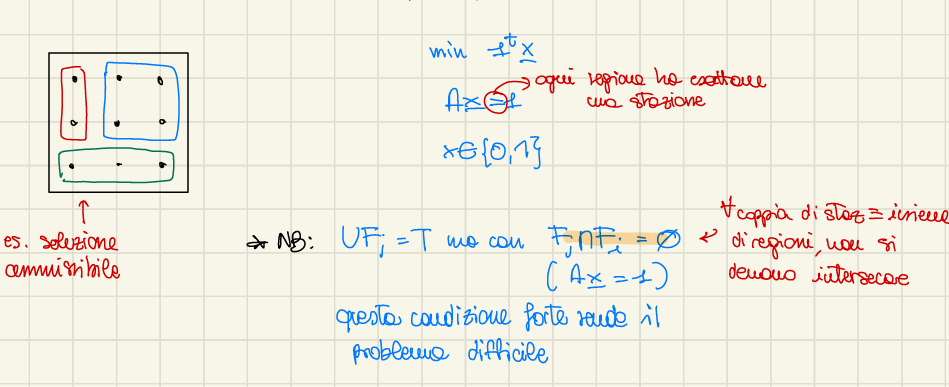 min 1ᵗx
Ax = 1 → ogni regione ha esattam
una stazione
x∈{0,1}
es. soluzione
ammissibile
→ NB: UFⱼ = T ma con Fⱼ∩Fᵢ = ∅
(Ax = 1)
∀ coppia di staz ≡ insieme
di regioni, non si
devono intersecare
questa condizione forte rende il
problema difficile